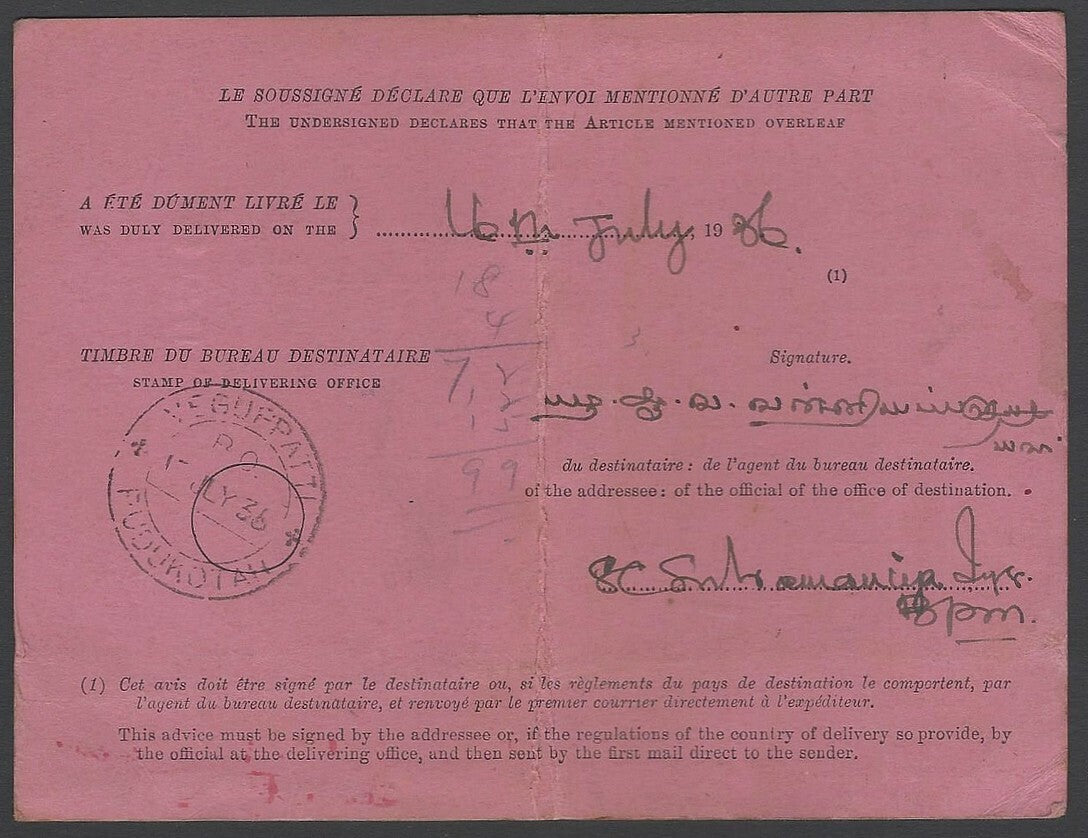 LE SOUSSIGNÉ DÉCLARE QUE L'ENVOI MENTIONNÉ D'AUTRE PART
THE UNDERSIGNED DECLARES THAT THE ARTICLE MENTIONED OVERLEAF
A ÉTÉ DÛMENT LIVRÉ LE
WAS DULY DELIVERED ON THE } 16th July, 1936.
(1)
18
4
7.2
99
TIMBRE DU BUREAU DESTINATAIRE
STAMP OF DELIVERING OFFICE
Signature.
VEGUPPATTI
P.O.
JLY 36
PUDUKOTAH
du destinataire : de l'agent du bureau destinataire.
of the addressee : of the official of the office of destination.
Subramania Iyer.
Bpm.
(1) Cet avis doit être signé par le destinataire ou, si les règlements du pays de destination le comportent, par
l'agent du bureau destinataire, et renvoyé par le premier courrier directement à l'expéditeur.
This advice must be signed by the addressee or, if the regulations of the country of delivery so provide, by
the official at the delivering office, and then sent by the first mail direct to the sender.